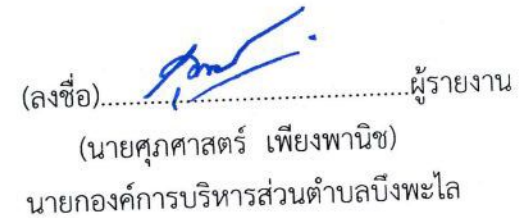 (ลงชื่อ)..............................................ผู้รายงาน
(นายศุภศาสตร์ เพียงพานิช)
นายกองค์การบริหารส่วนตำบลบึงพะไล